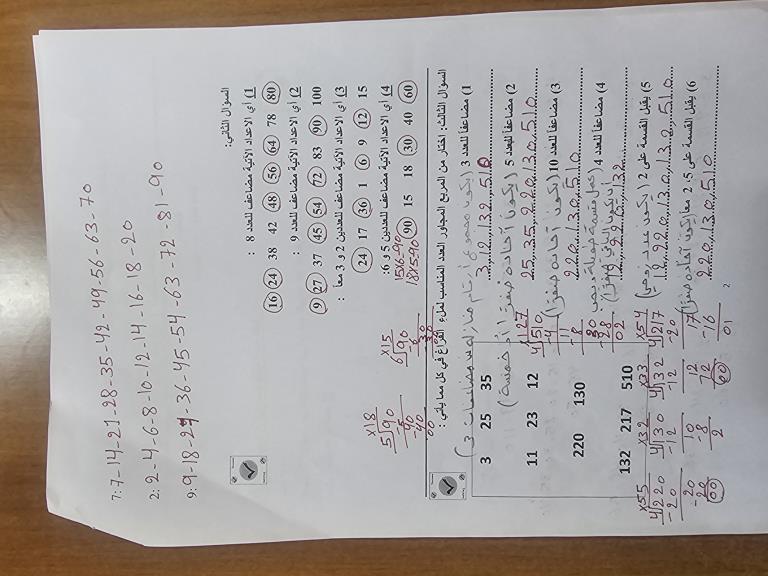 7: 7-14-21-28-35-42-49-56-63-70
2: 2-4-6-8-10-12-14-16-18-20
9: 9-18-27-36-45-54-63-72-81-90
السؤال الثاني:
1) أي الأعداد الآتية مضاعف للعدد 8 :
16 24 38 42 48 56 64 78 80
2) أي الأعداد الآتية مضاعف للعدد 9 :
9 27 37 45 54 72 83 90 100
3) أي الأعداد الآتية مضاعف للعددين 2 و 3 معا :
24 17 36 1 6 9 12 15
4) أي الأعداد الآتية مضاعف للعددين 5 و 6:
15x6=90
18x5=90
90 15 18 30 40 60
x18
5√90
-5
40
-40
00
x15
6√90
-6
30
30
00
السؤال الثالث: اختار من المربع المجاور العدد المناسب لملء الفراغ في كل مما يأتي :
3 25 35
11 23 12
220 130
132 217 510
1) مضاعفا للعدد 3 (يكون مجموع أرقام منازله مضاعفات 3)
3, 12, 132, 510
2) مضاعفا للعدد 5 (يكون آحاده صفرا أو خمسة)
25, 35, 220, 130, 510
3) مضاعفا للعدد 10 (يكون آحاده صفرا)
220, 130, 510
4) مضاعفا للعدد 4
12, 220, 132
5) يقبل القسمة على 2 (يكون عدد زوجي)
12, 220, 130, 132, 510
6) يقبل القسمة على 5، 2 معا (يكون آحاده صفرا)
220, 130, 510
127
4√510
-4
11
-8
30
28
02
x55
4√220
-20
20
-20
00
x32
4√130
-12
10
-8
2
x33
4√132
-12
12
12
00
x54
4√217
-20
17
-16
01